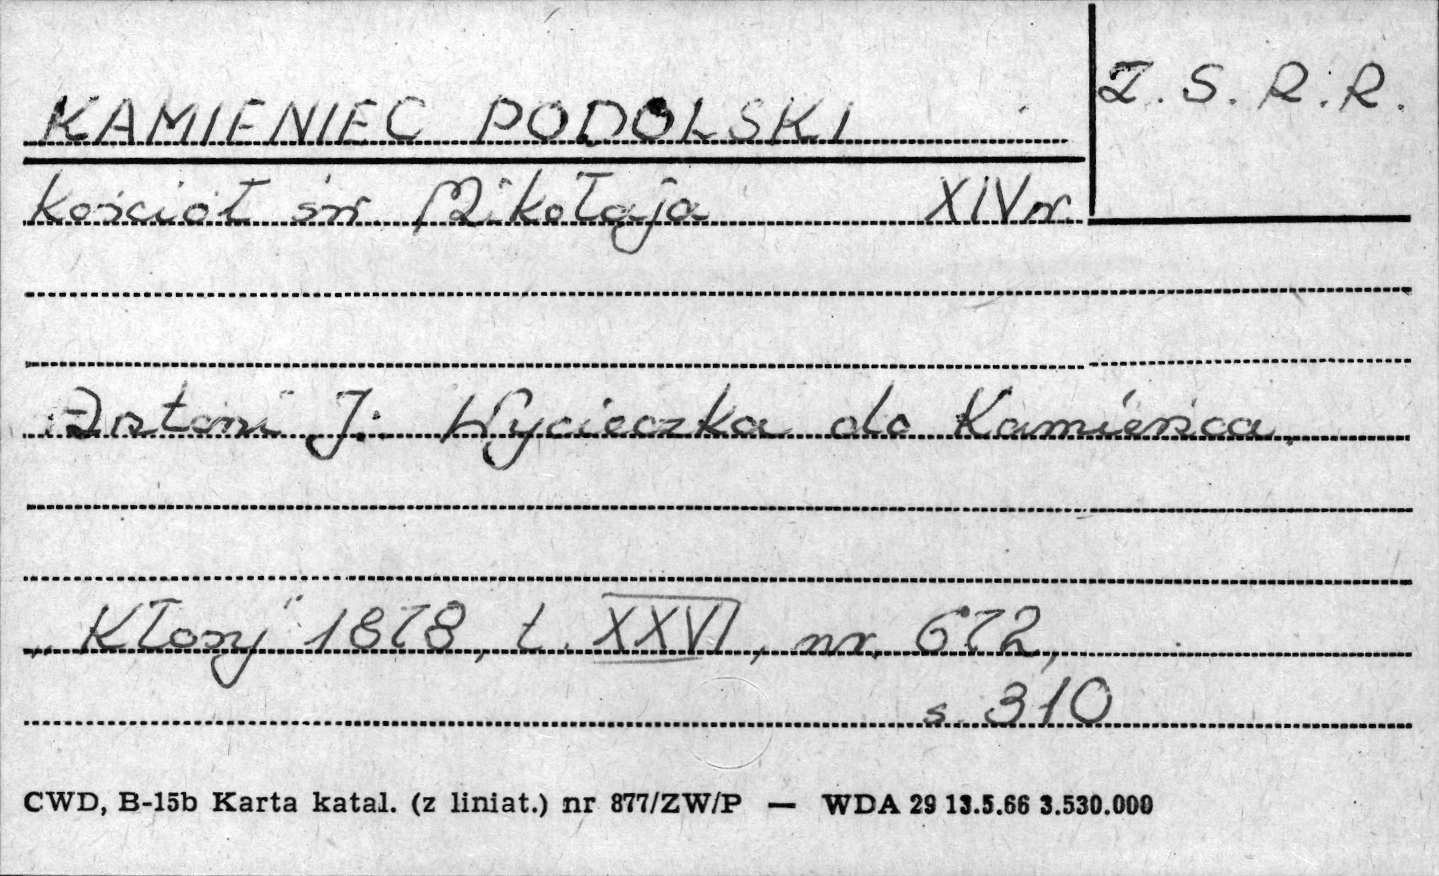 KAMIENIEC PODOLSKI
Z.S.R.R.
kościół św Mikołaja XIV w.
Antoni J.: Wycieczka do Kamieńca.
„Kłosy" 1878, t. XXVI, nr. 672,
s. 310
CWD, B-15b Karta katal. (z liniat.) nr 877/ZW/P — WDA 29 13.5.66 3.530.000